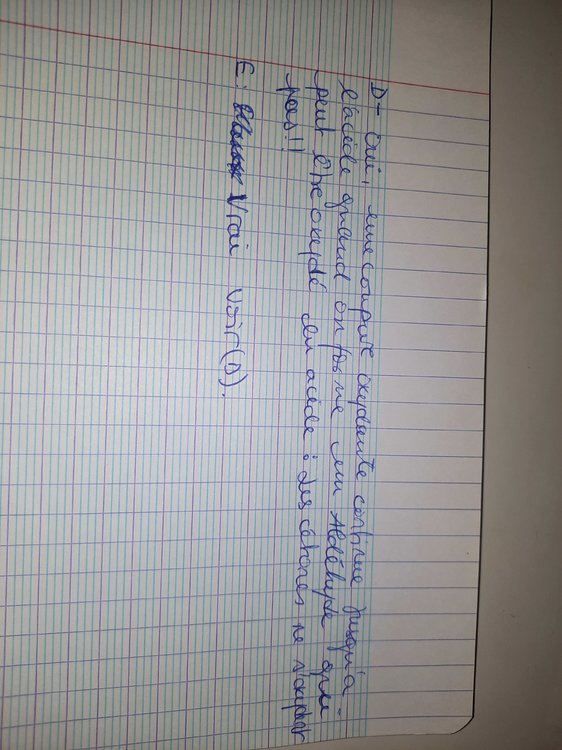 D- Oui, une coupure oxydante continue jusqu'à
l'acide quand on forme un Aldéhyde qui
peut être oxydé en acide : les cétones ne s'oxydent
pas!!
E: Vrai Voir (D).